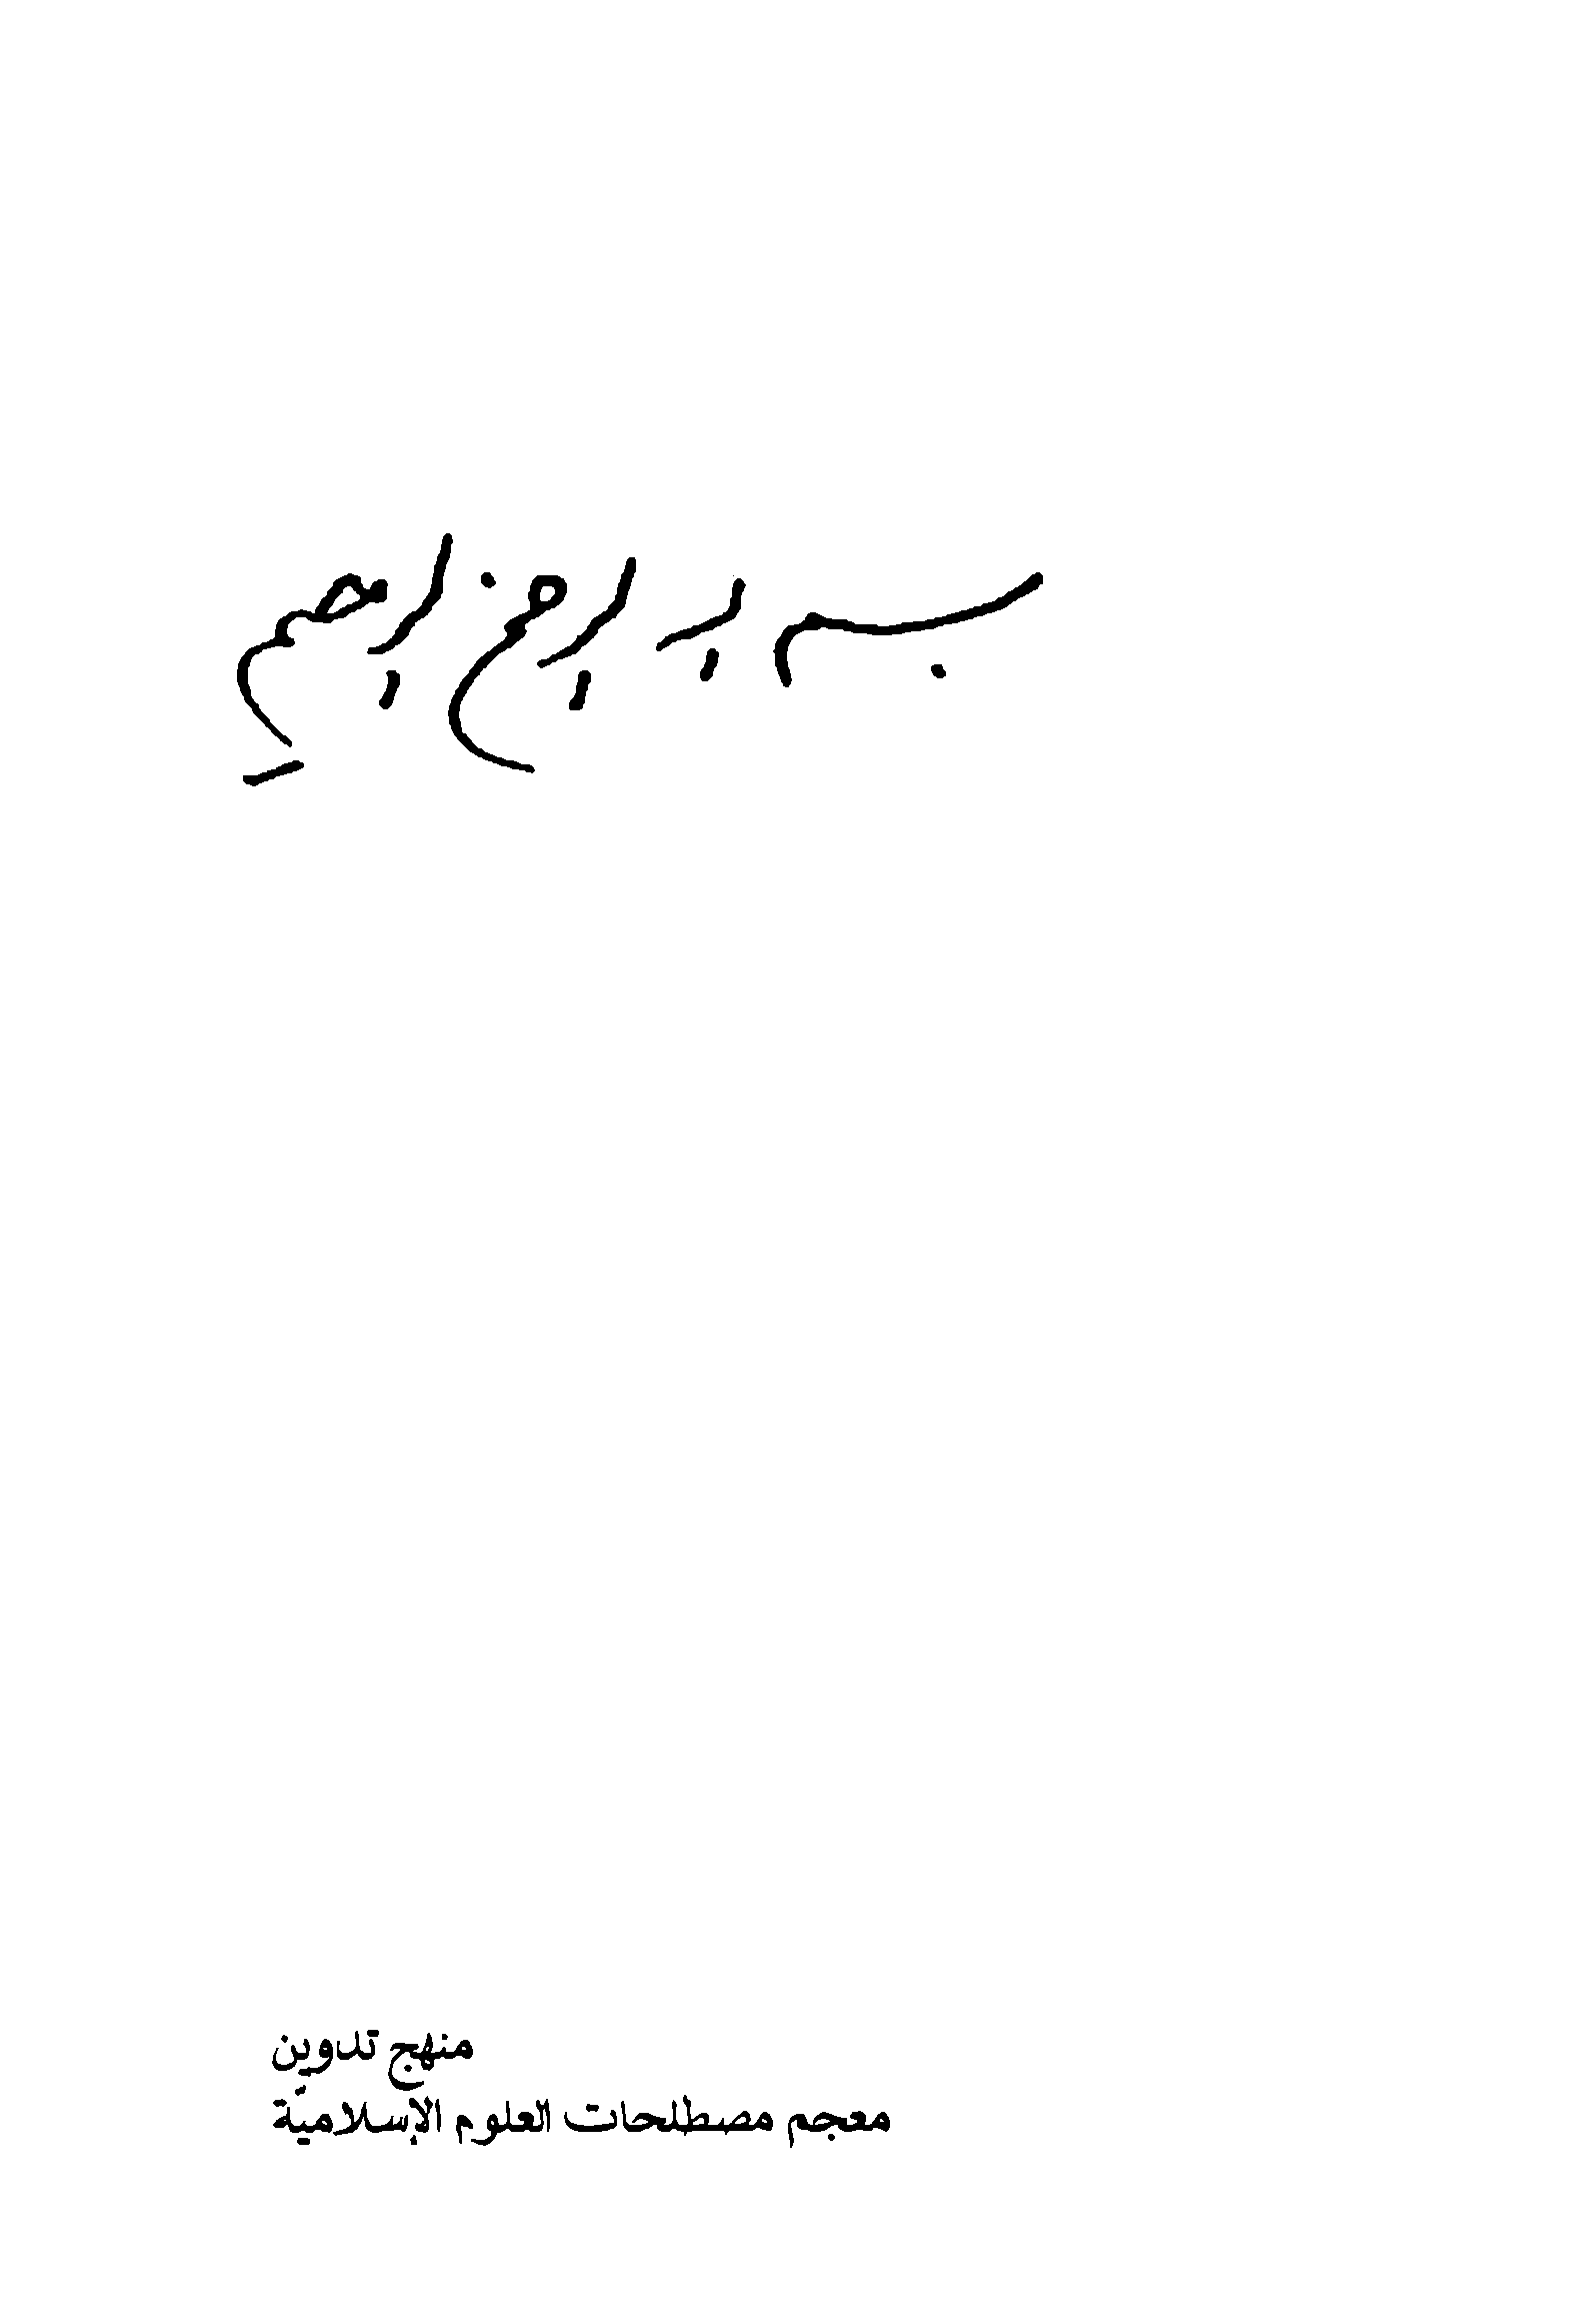 بسم الله الرحمن الرحيم
منهج تدوين
معجم مصطلحات العلوم الإسلاميّة